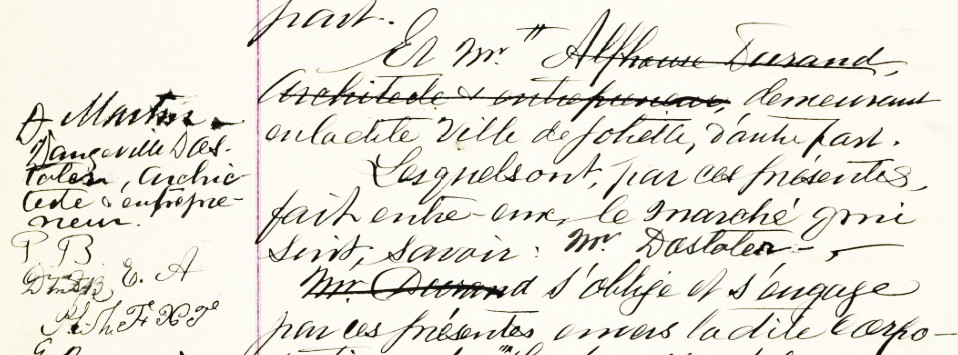 part.
Et Mr. " Alphonse Durand,
Architecte & entrepreneur, demeurant
en la dite Ville de Joliette, d'autre part.
Lesquels ont, par ces présentes,
fait entre-eux, le marché qui
suit, savoir: Mr Dostaler -,
Mr. Durand s'oblige et s'engage
par ces présentes envers la dite Corpo-
" Martin
Dangeville Dos-
taler, Archi-
tecte & entrepre-
neur.
P B
E. A